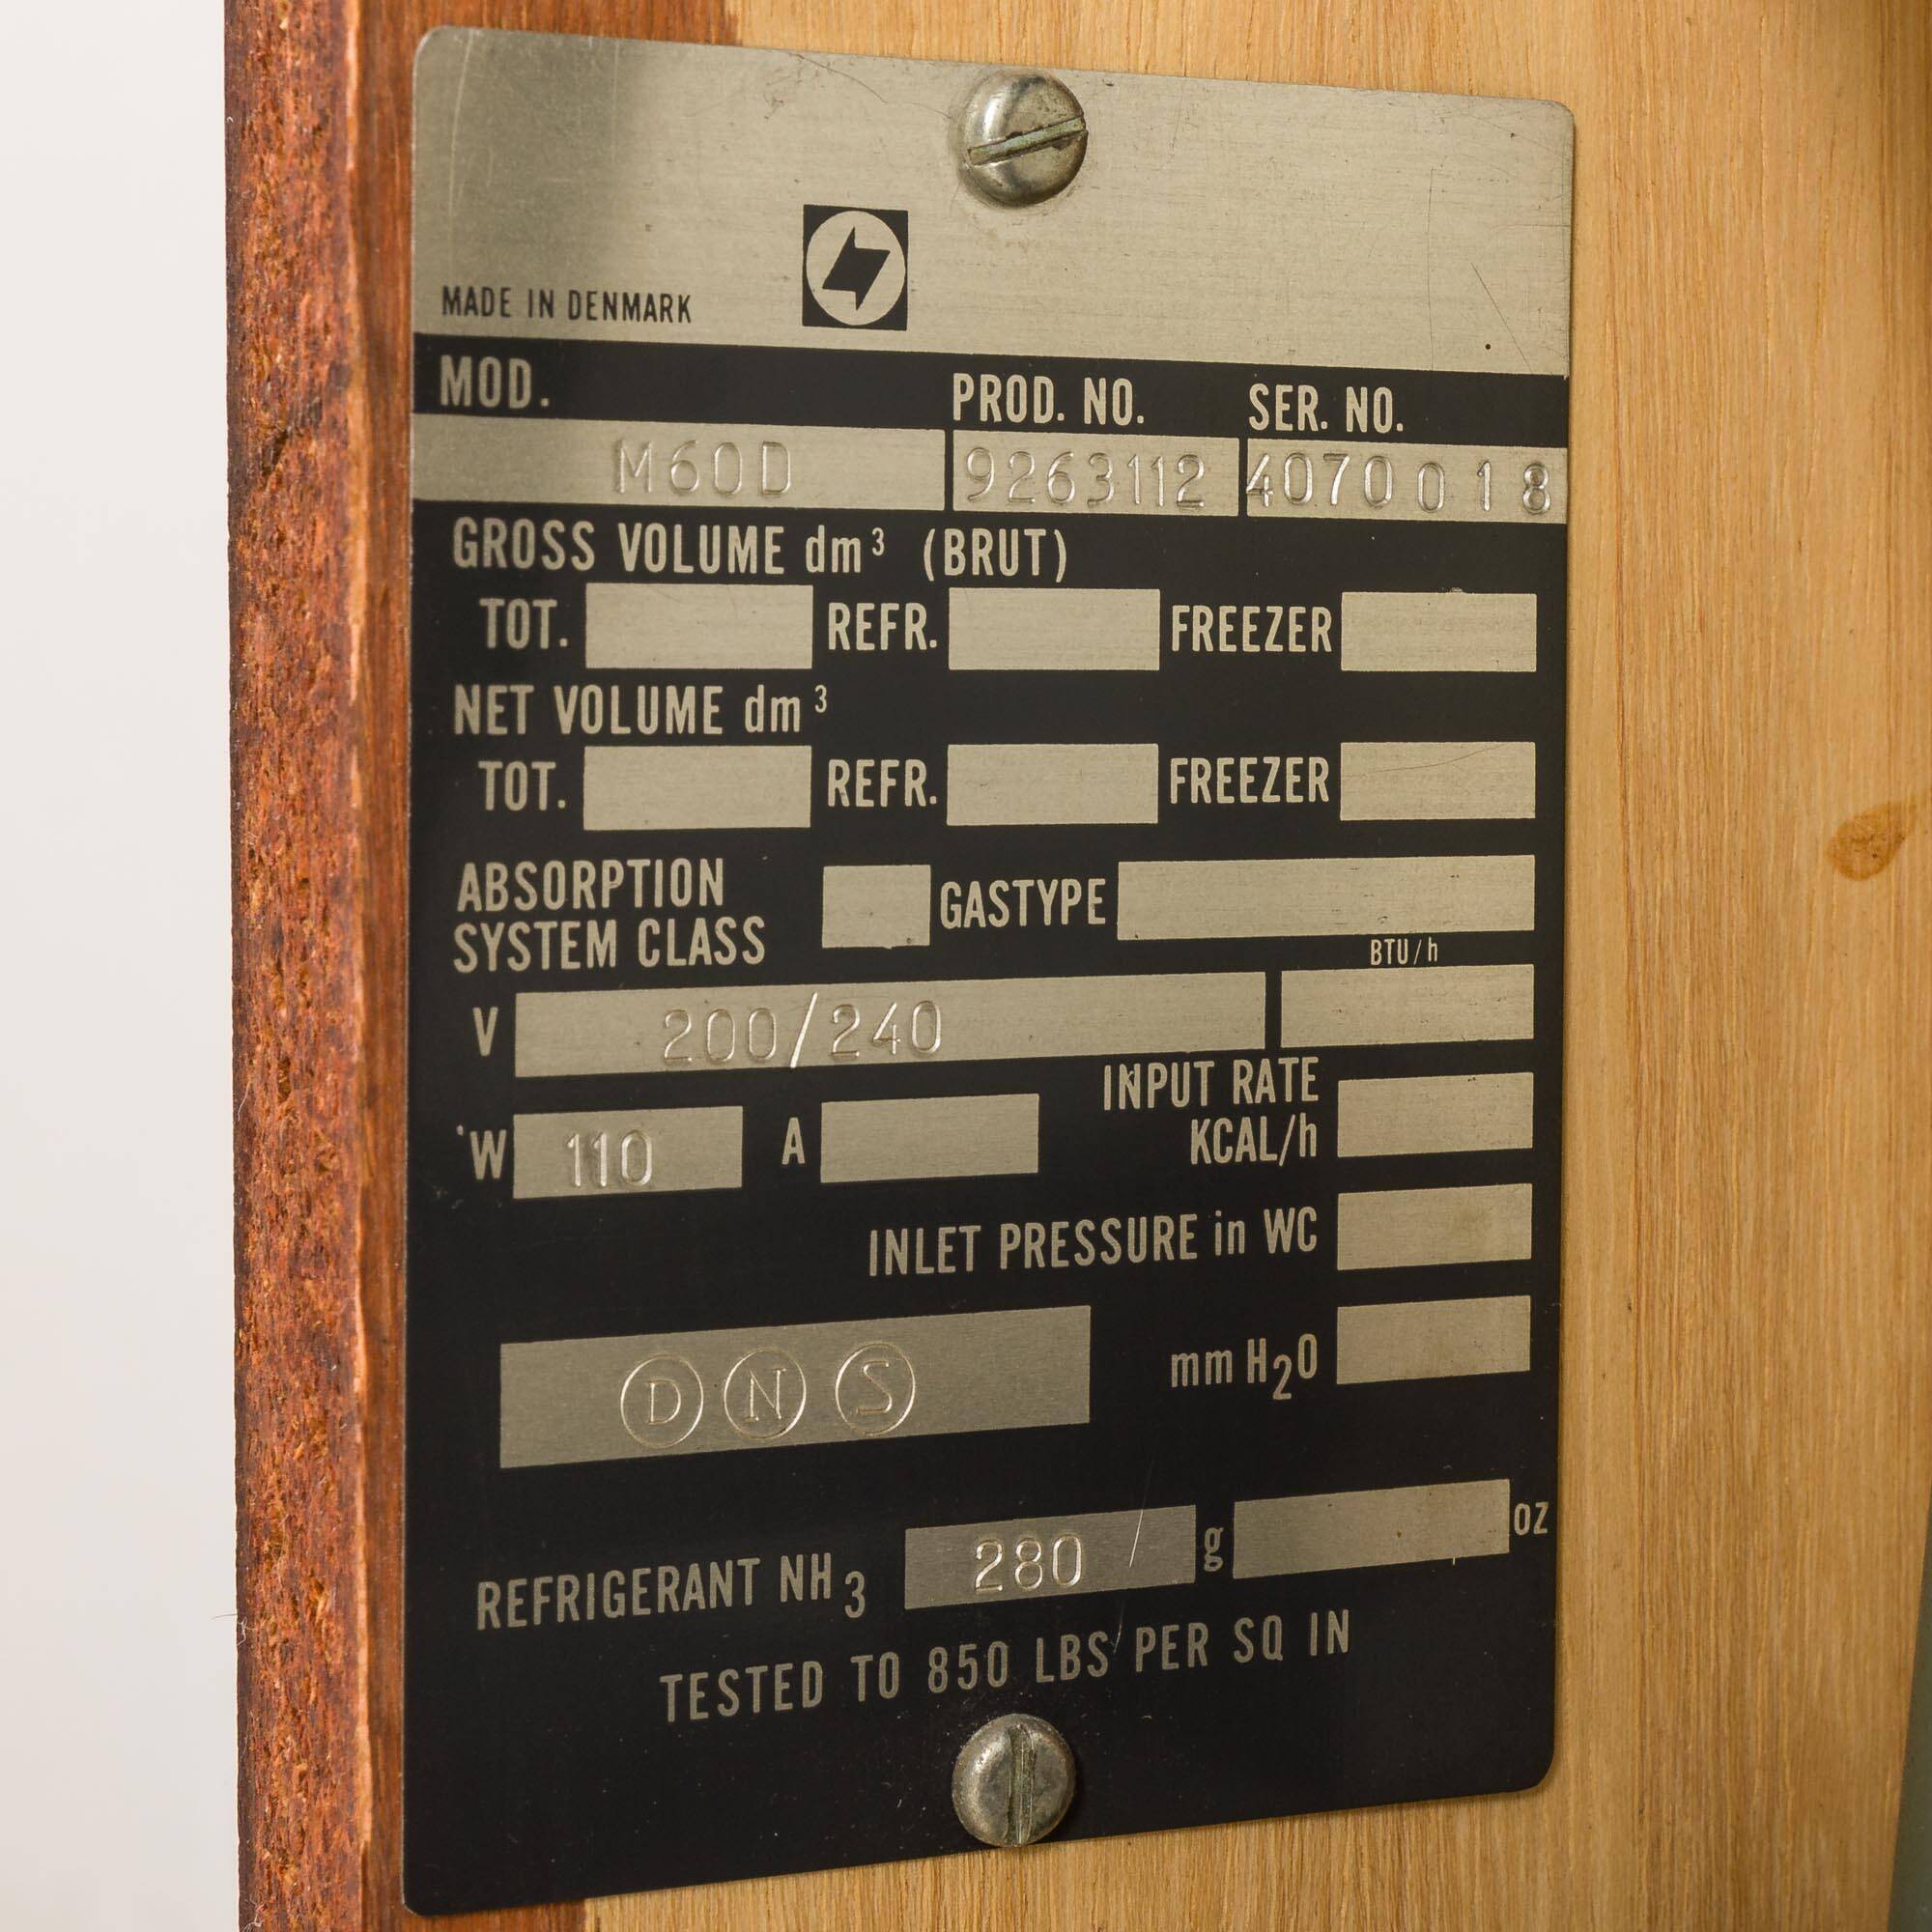 MADE IN DENMARK
MOD. PROD. NO. SER. NO.
M60D 9263112 4070018
GROSS VOLUME dm³ (BRUT)
TOT. REFR. FREEZER
NET VOLUME dm³
TOT. REFR. FREEZER
ABSORPTION
SYSTEM CLASS GASTYPE
BTU/h
V 200/240
INPUT RATE
W 110 A KCAL/h
INLET PRESSURE in WC
D N S mm H₂O
REFRIGERANT NH₃ 280 g oz
TESTED TO 850 LBS PER SQ IN